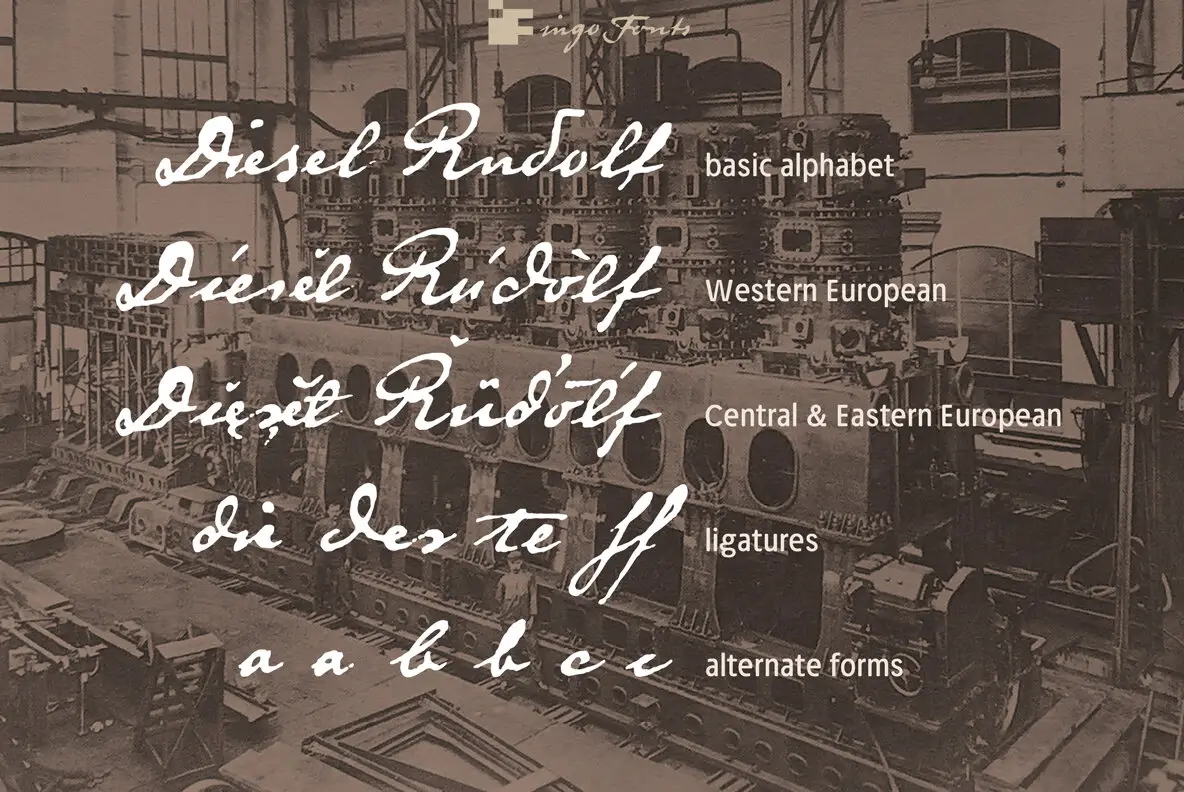 ingo Fonts
Diesel Rudolf basic alphabet
Western European
Central & Eastern European
die der te ff ligatures
a a b b c c alternate forms